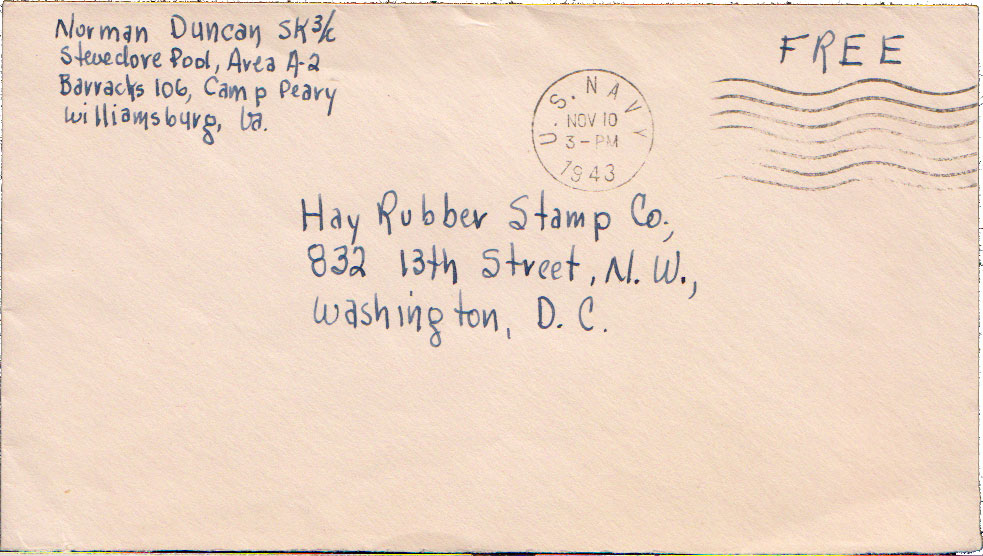 Norman Duncan SK3/c
Stevedore Pool, Area A-2
Barracks 106, Camp Peary
Williamsburg, Va.
FREE
U.S. NAVY
NOV 10
3-PM
1943
Hay Rubber Stamp Co.,
832 13th Street, N. W.,
Washington, D. C.